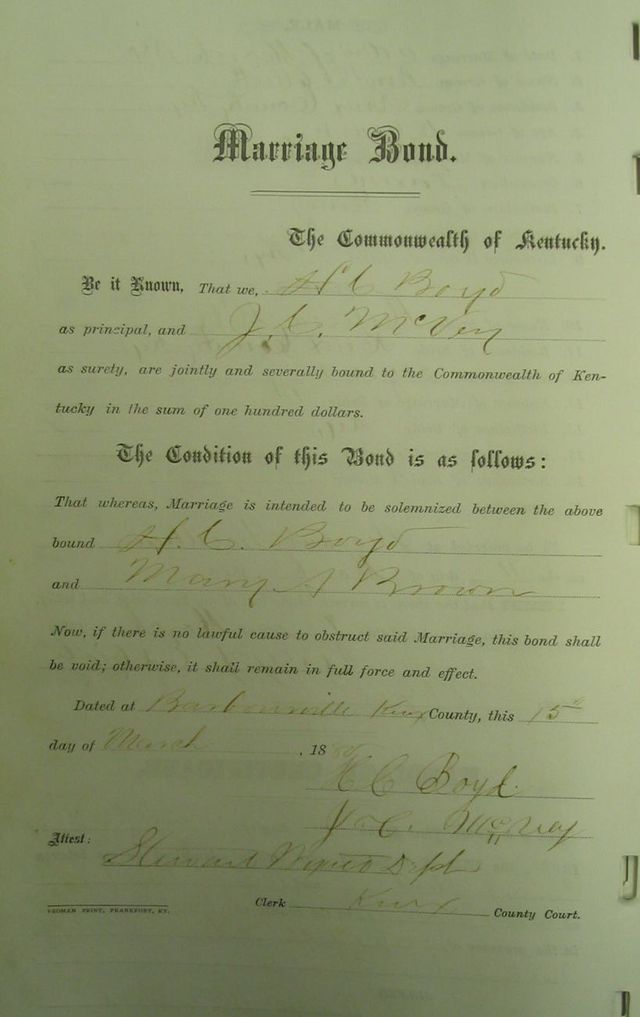 Marriage Bond.
The Commonwealth of Kentucky.
Be it Known, That we, H C Boyd
as principal, and J. C. McVey
as surety, are jointly and severally bound to the Commonwealth of Ken-
tucky in the sum of one hundred dollars.
The Condition of this Bond is as follows:
That whereas, Marriage is intended to be solemnized between the above
bound H. C. Boyd
and Mary A Brown
Now, if there is no lawful cause to obstruct said Marriage, this bond shall
be void; otherwise, it shall remain in full force and effect.
Dated at Barbourville Knox County, this 15th
day of March, 18
H C Boyd
J. C. McVey
Attest:
Clerk Knox County Court.
YEOMAN PRINT, FRANKFORT, KY.